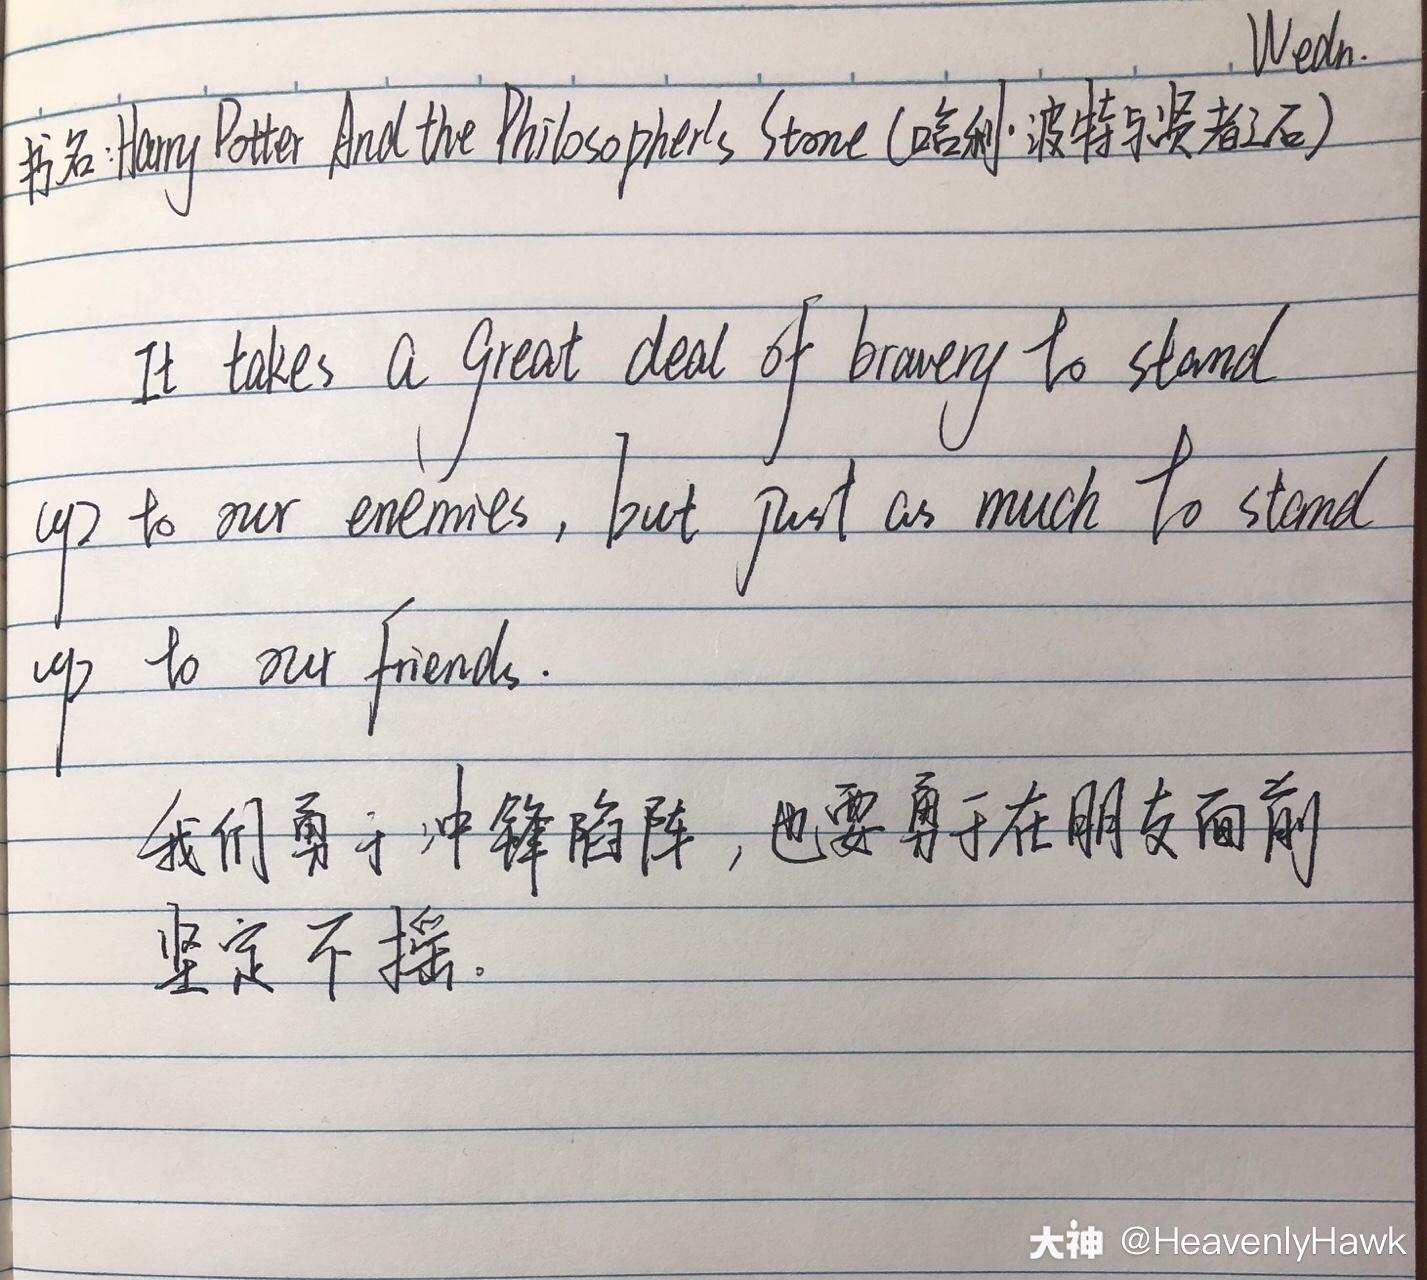 Wedn.
书名:Harry Potter And the Philosopher's Stone(哈利·波特与贤者之石)
It takes a great deal of bravery to stand
up to our enemies, but just as much to stand
up to our friends.
我们勇于冲锋陷阵,也要勇于在朋友面前
坚定不摇。
大神 @HeavenlyHawk